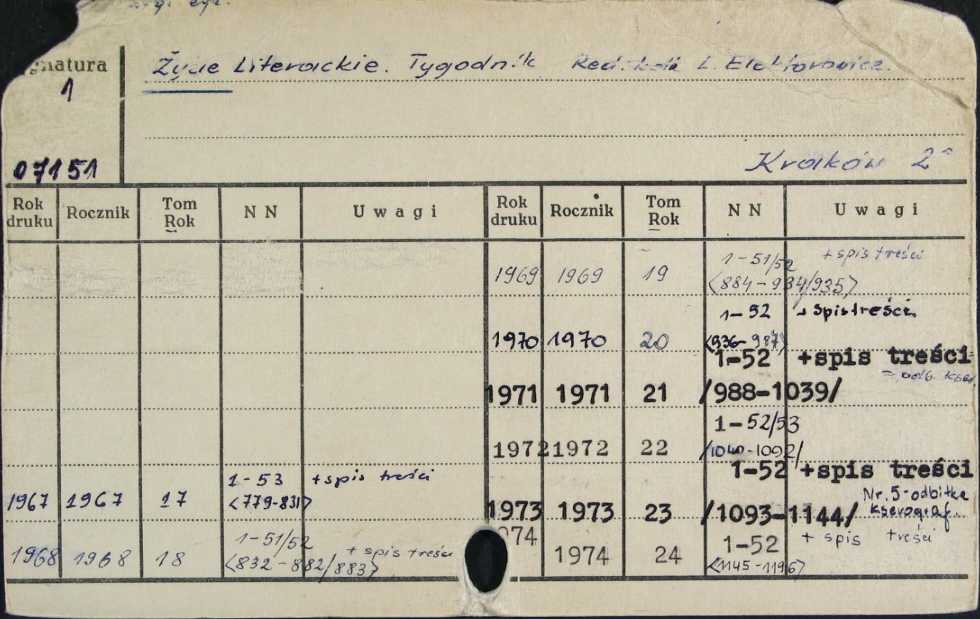 gnatura
1
07151
Życie Literackie. Tygodnik Red. L. Elektorowicz.
Kraków 2°
Rok druku Rocznik Tom Rok N N Uwagi Rok druku Rocznik Tom Rok N N Uwagi
1969 1969 19 1-51/52 + spis treści
<884-934/935>
1970 1970 20 1-52 + spis treści
<936-987>
1971 1971 21 1-52 +spis treści
/988-1039/ odb. kser
1972 1972 22 1-52/53
/1040-1092/
1967 1967 17 1-53 + spis treści
<779-831>
1973 1973 23 1-52 +spis treści
/1093-1144/ Nr. 5-odbitka
kserograf.
1968 1968 18 1-51/52 + spis treści
<832-882/883>
974 1974 24 1-52 + spis treści
<1145-1196>